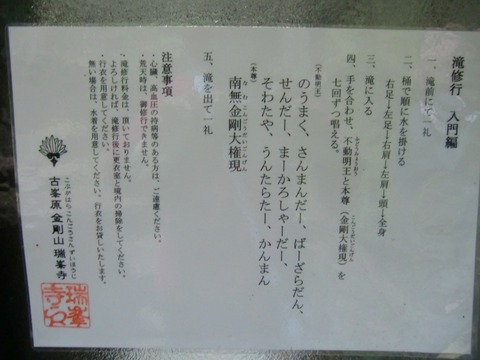 滝修行　入門編
一、滝前にて一礼
二、桶で順に水を掛ける
右足→左足→右肩→左肩→頭→全身
三、滝に入る
四、手を合わせ、不動明王と本尊（金剛大権現）を
七回ずつ唱える。
（不動明王）
のうまく、さんまんだー、ばーざらだん、
せんだー、まーかろしゃーだー、
そわたや、うんたらたー、かんまん
（本尊）
南無金剛大権現
五、滝を出て一礼
注意事項
・心臓、高血圧の持病等のある方は、ご遠慮ください。
・荒天時は、御修行できません。
・滝修行料金は、頂いておりません。
よろしければ、滝修行後に更衣室と境内の掃除をしてください。
・行衣を用意してください。行衣をお貸しいたします。
無い場合は、水着を用意してください。
古峯原金剛山瑞峯寺
こぶがはらこんごうさんずいほうじ
瑞峯寺印